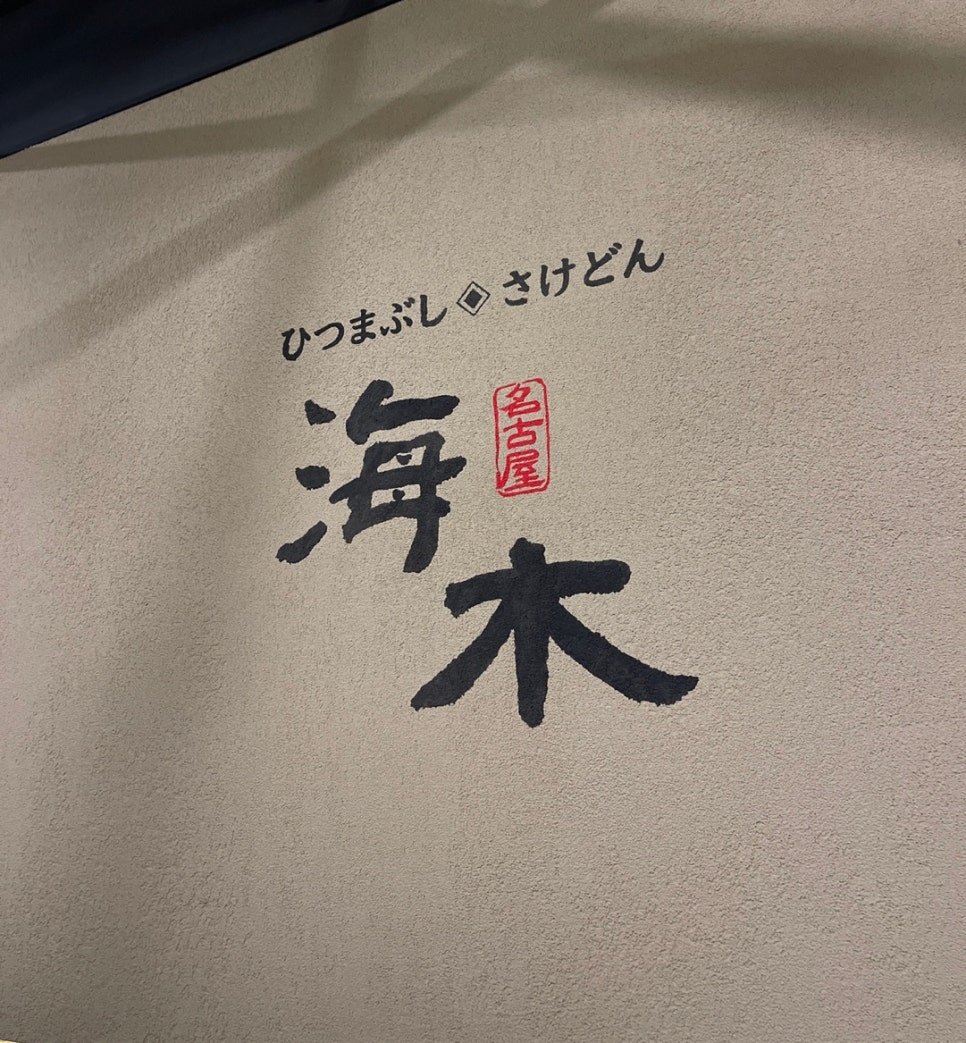 ひつまぶし◈さけどん
海木
名古屋